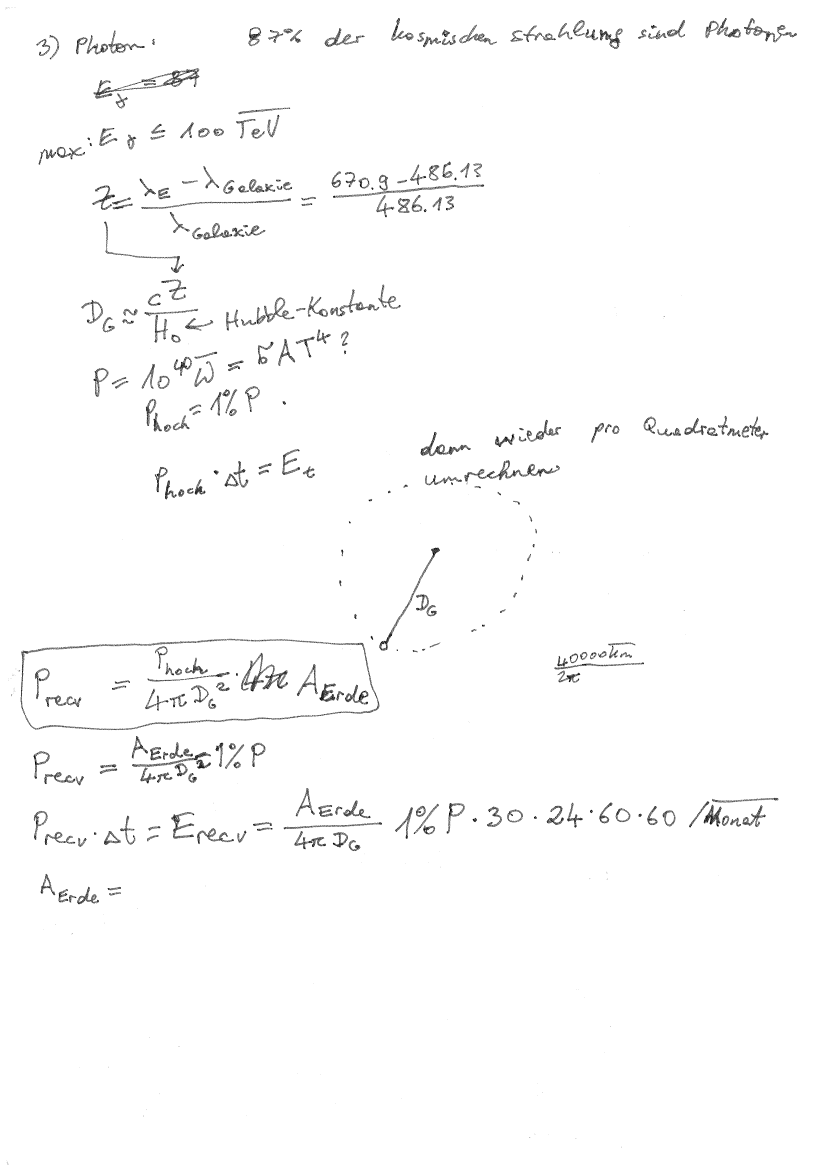 3) Photon: 87% der kosmischen Strahlung sind Photonen
max: E_γ ≤ 100 TeV
Z = (λ_E − λ_Galaxie) / λ_Galaxie = (670.9 − 486.13) / 486.13
D_G ≈ cZ / H_0 ← Hubble-Konstante
P = 10^40 W = σAT^4 ?
P_hoch = 1% P .
dann wieder pro Quadratmeter
umrechnen
P_hoch · Δt = E_t
D_G
40000km / 2π
P_recv = P_hoch / (4π D_G^2) · A_Erde
P_recv = A_Erde / (4π D_G^2) 1% P
P_recv · Δt = E_recv = A_Erde / (4π D_G) 1% P · 30 · 24 · 60 · 60 /Monat
A_Erde =